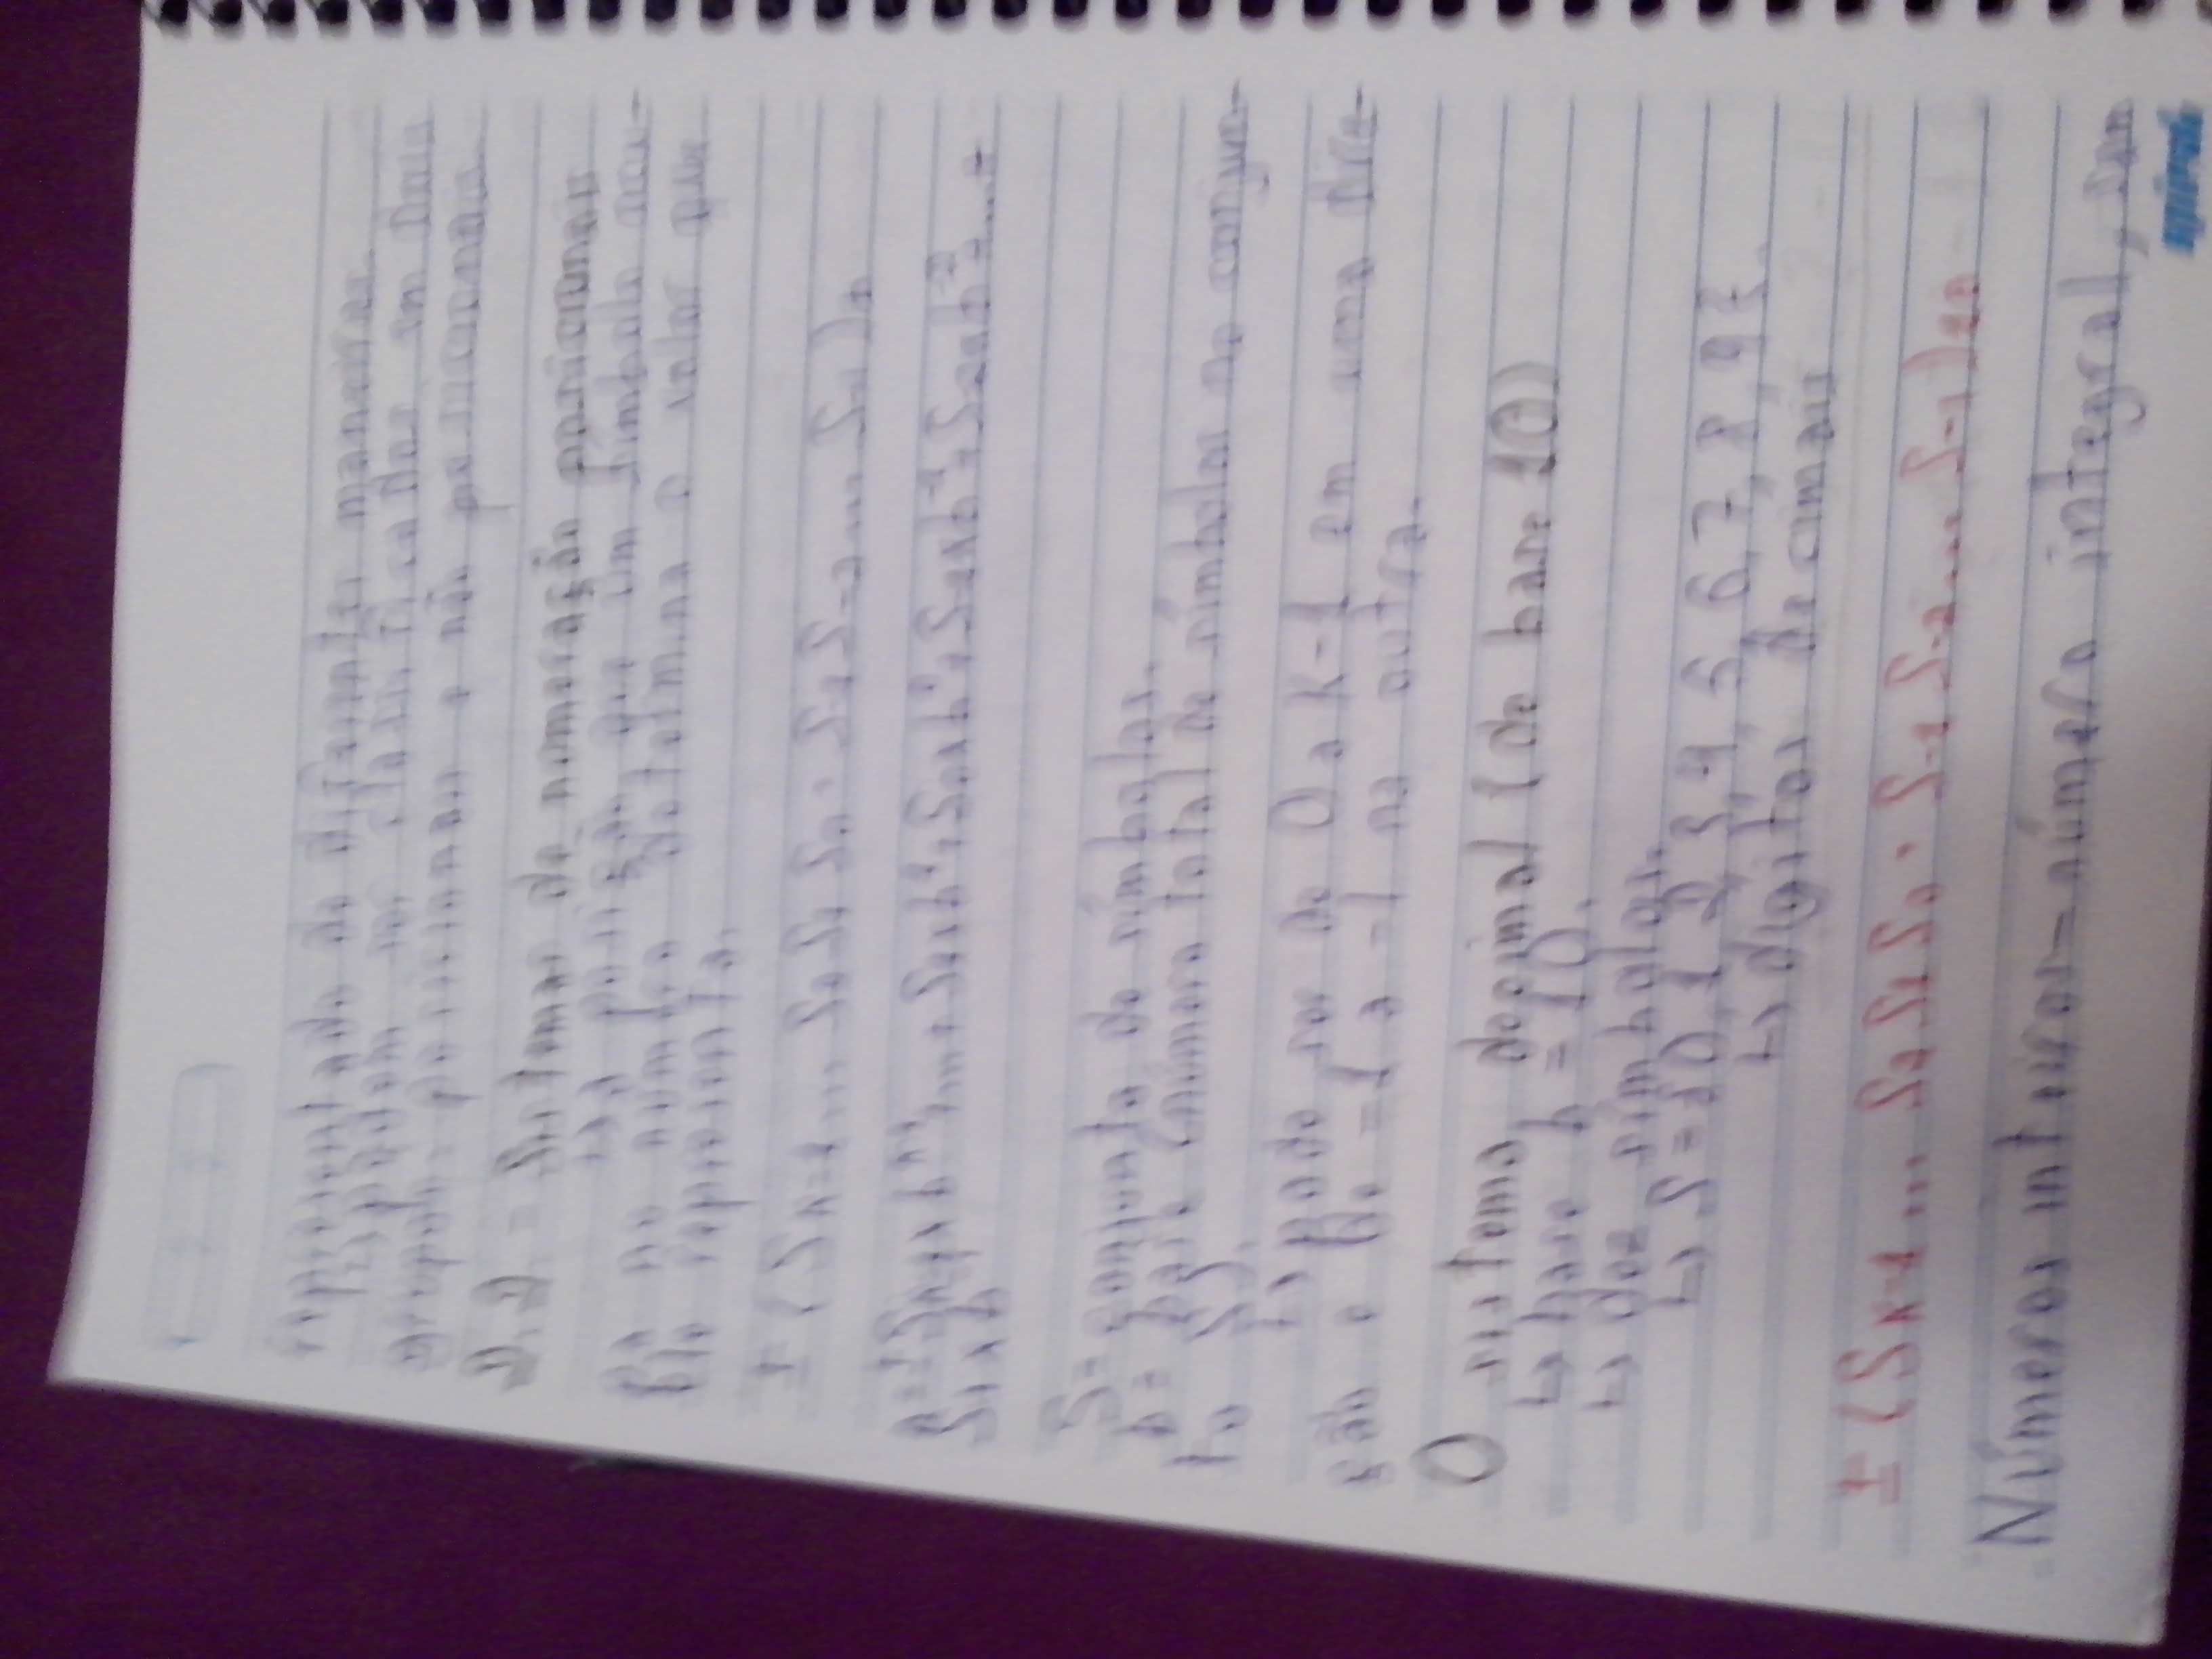 representado de diferentes maneiras.
↳ podem ser classificados em dois
grupos: posicionais e não posicionais.
2.2. = Sistemas de numeração posicionais
↳ a posição que um símbolo ocu-
pa no número determina o valor que
ele representa.
± (Sk-1... S2 S1 S0 . S-1 S-2 ... S-l)b
n = ± Sk-1 x b^k-1 + ... + S1 x b^1 + S0 x b^0 + S-1 x b^-1 + S-2 x b^-2 + ... +
S-l x b^-l
S = conjunto de símbolos.
b = base (número total de símbolos no conjun-
to S).
↳ pode ser de 0 a k-1 em uma dire-
ção e de -1 a -l na outra.
O sistema decimal (de base 10)
↳ base b = 10.
↳ dez símbolos.
↳ S = {0, 1, 2, 3, 4, 5, 6, 7, 8, 9}.
↳ dígitos decimais
± (Sk-1 ... S2 S1 S0 . S-1 S-2 ... S-l)10
Números inteiros = número integral, sem
spiral